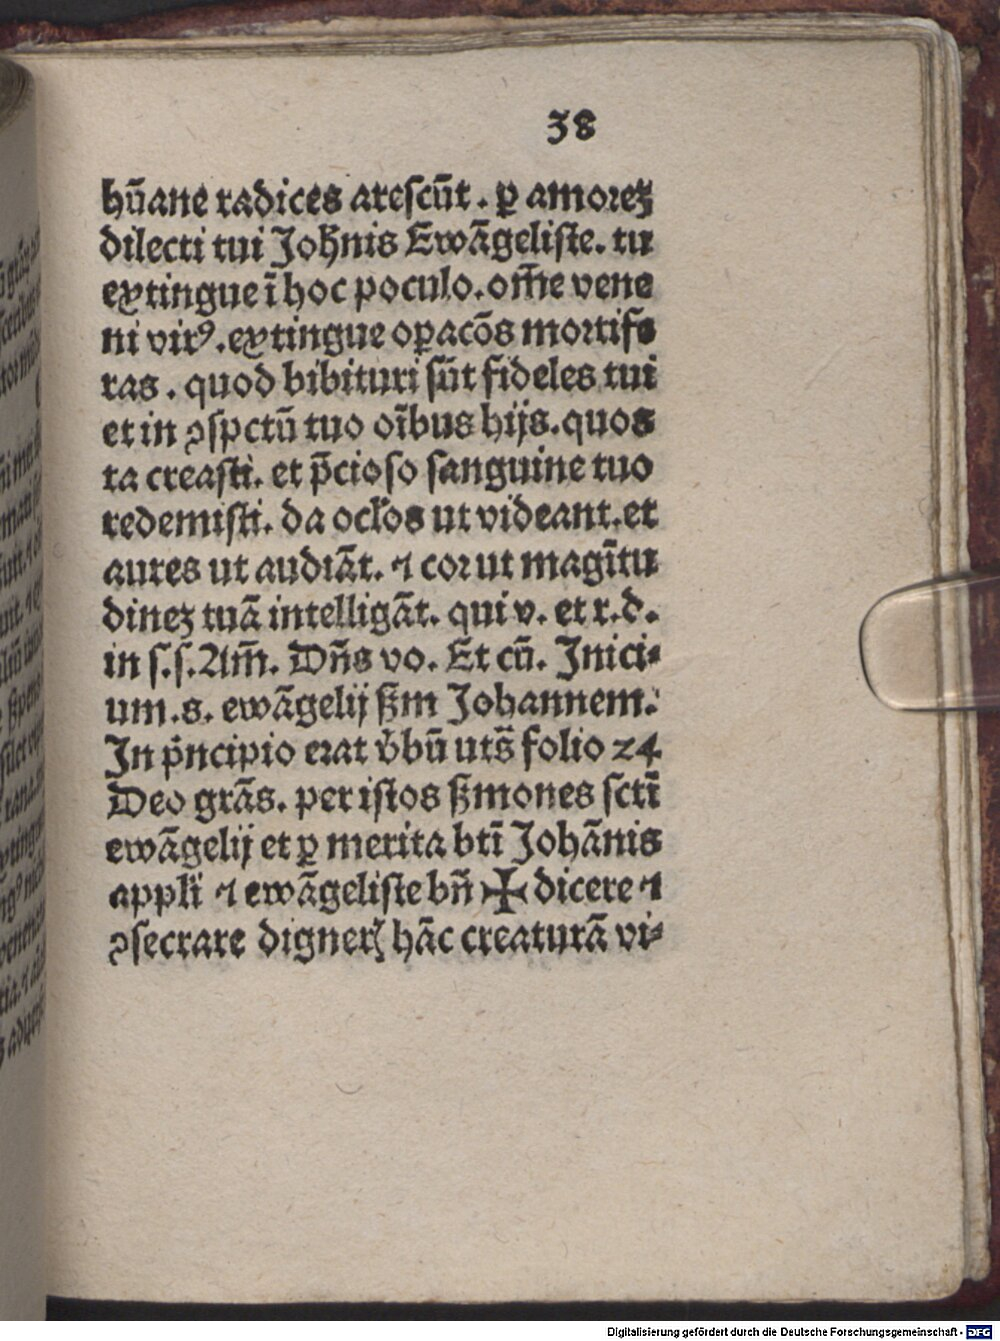 38
hūane radices arescūt. ꝑ amoreꝫ
dilecti tui Johnis Ewāgeliste. tu
extingue ī hoc poculo. om̄e vene
ni virꝰ. extingue oꝑacōs mortife
ras. quod bibituri sūt fideles tui
et in ↄspctū tuo oībus hijs. quos
ta creasti. et p̄cioso sanguine tuo
redemisti. da oclos ut videant. et
aures ut audiāt. ⁊ cor ut magītu
dineꝫ tuā intelligāt. qui v. et r. d.
in s. s. Am̄. Dn̄s vo. Et cū. Inici⸗
um. s. ewāgelij ẜm Johannem.
In p̄ncipio erat v̄bū uts̄ folio 24
Deo grās. per istos ẜmones sctī
ewāgelij et ꝑ merita btī Johānis
appli ⁊ ewāgeliste bn̄ ✠ dicere ⁊
ↄsecrare digneꝝ hāc creaturā vi⸗
Digitalisierung gefördert durch die Deutsche Forschungsgemeinschaft - DFG